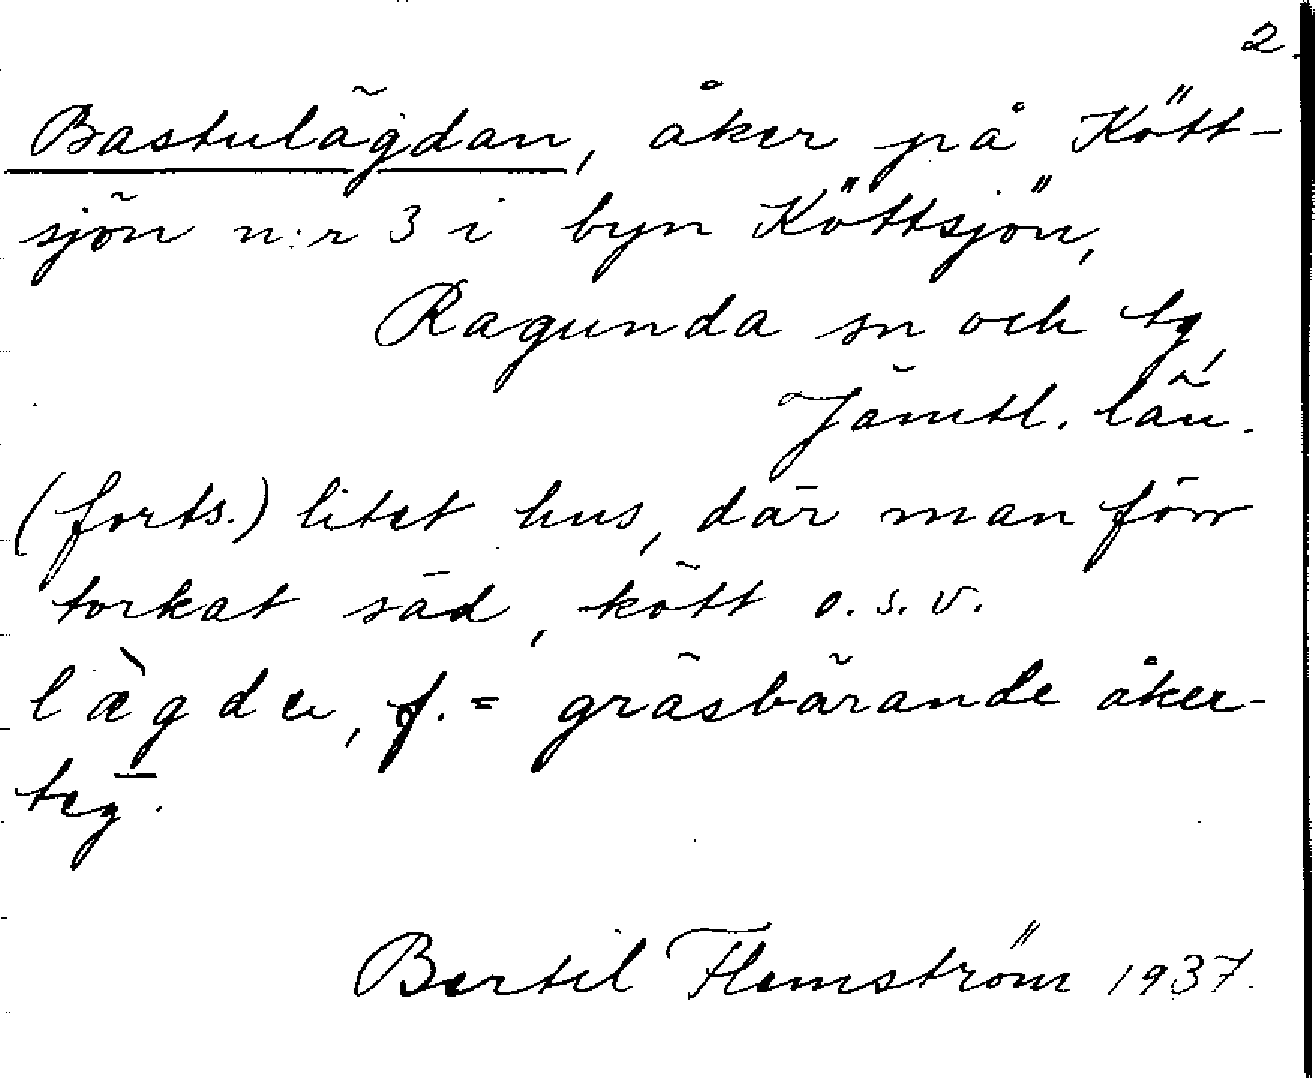 2.
Bastulägdan, åker på Kött-
sjön n:r 3 i byn Köttsjön,
Ragunda sn och tg,
Jämtl. län.
(forts.) litet hus, där man förr
torkat säd, kött o.s.v.
læ̀gda, f. = gräsbärande åker-
teg.
Bertil Flemström 1937.